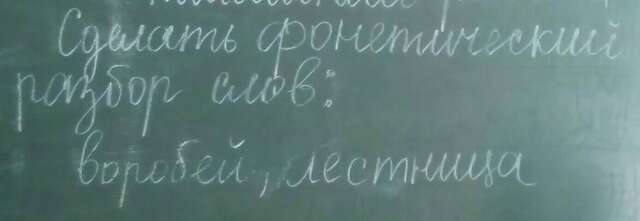 Сделать фонетический
разбор слов:
воробей, лестница